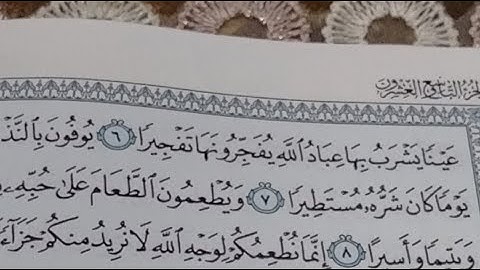 الجزء التاسع والعشرون
عَيْنًا يَشْرَبُ بِهَا عِبَادُ اللَّهِ يُفَجِّرُونَهَا تَفْجِيرًا ٦ يُوفُونَ بِالنَّذْ
يَوْمًا كَانَ شَرُّهُ مُسْتَطِيرًا ٧ وَيُطْعِمُونَ الطَّعَامَ عَلَىٰ حُبِّهِ
وَيَتِيمًا وَأَسِيرًا ٨ إِنَّمَا نُطْعِمُكُمْ لِوَجْهِ اللَّهِ لَا نُرِيدُ مِنكُمْ جَزَآءً